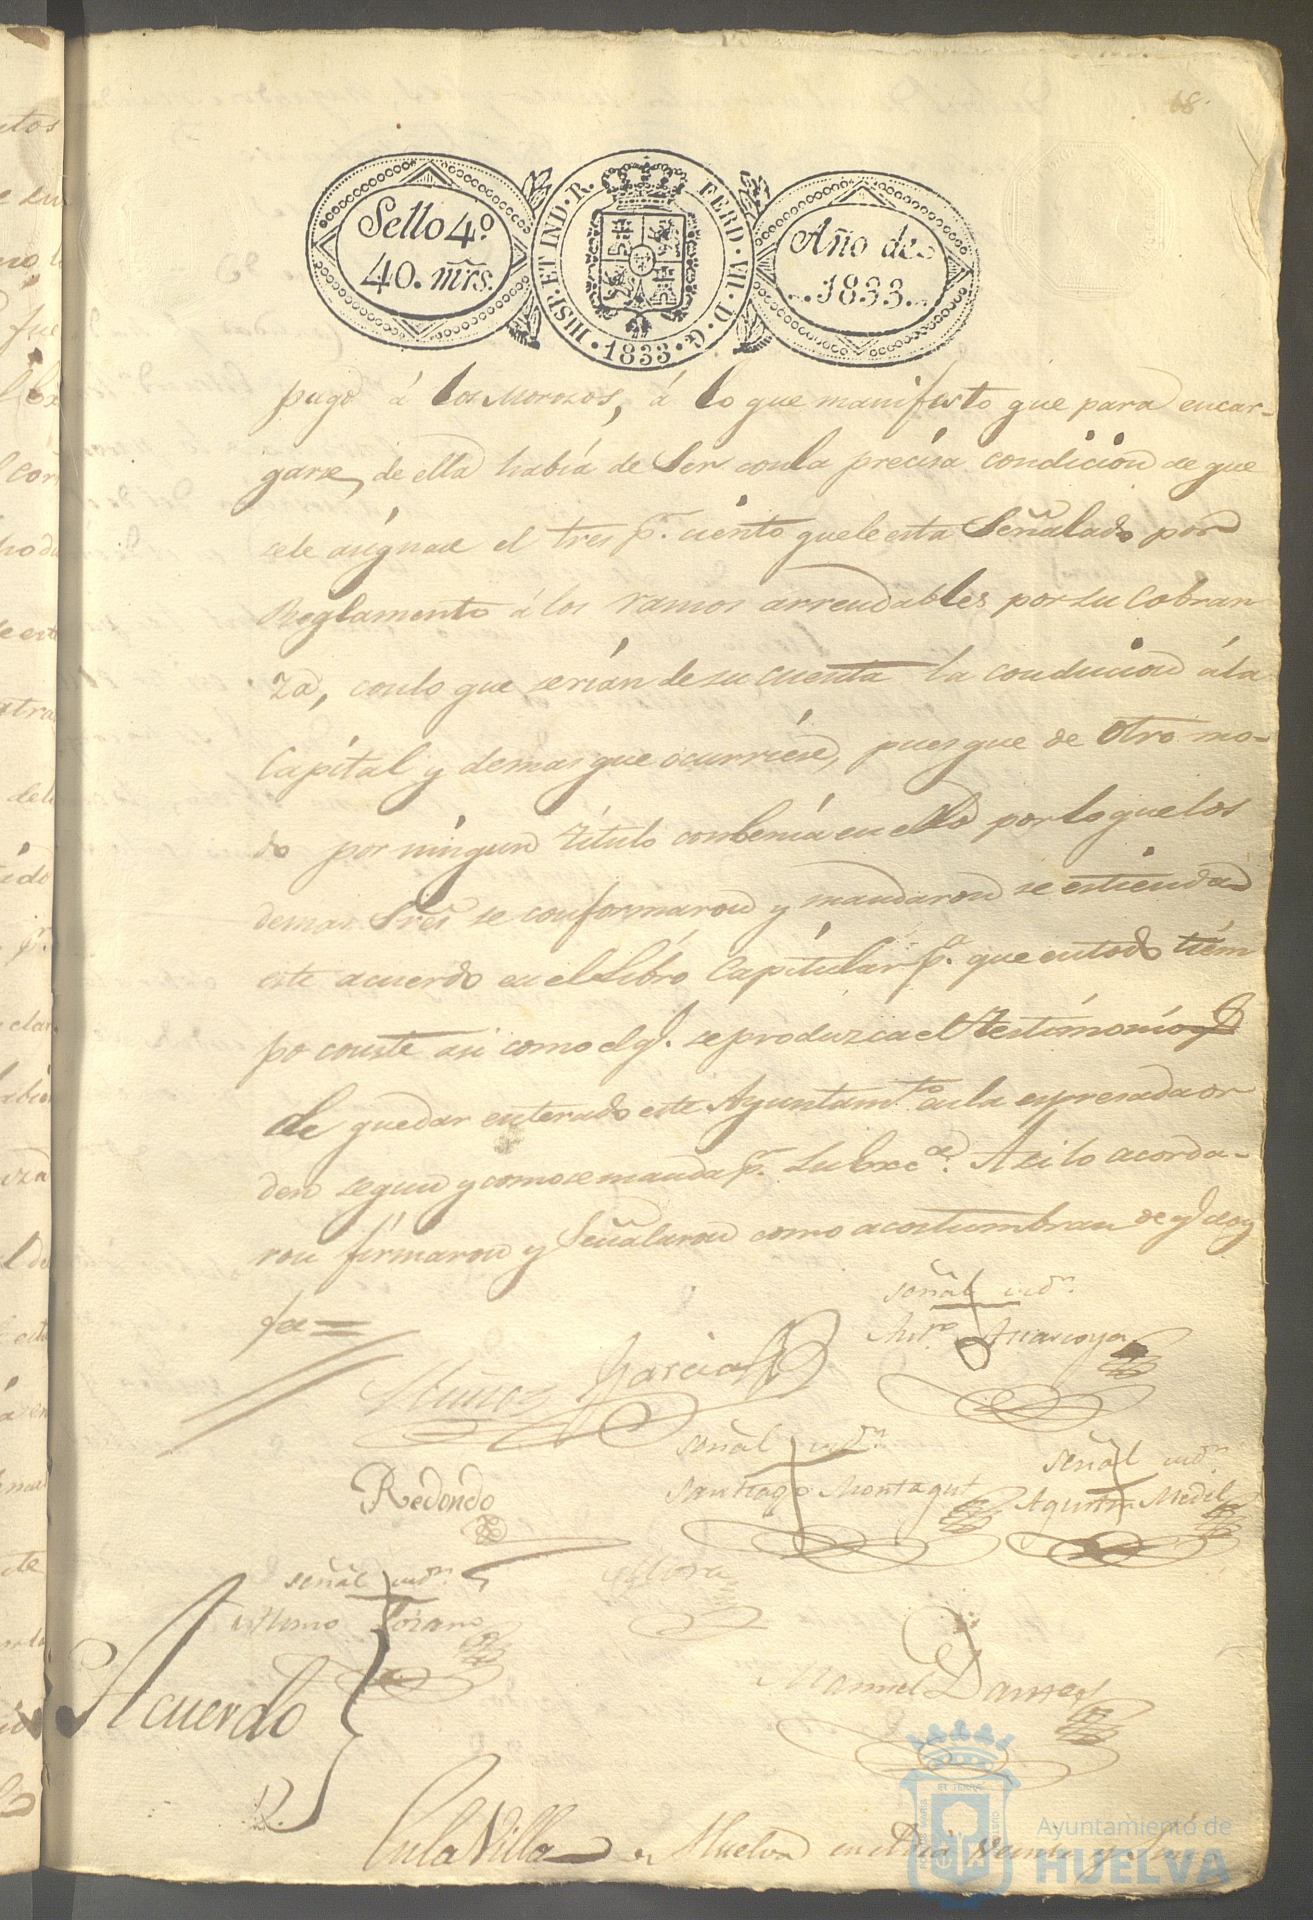 68.
Sello 4º
40. mrs.
HISP. ET IND. R. FERD. VII. D. G. 1833
Año de
1833.
pago á los Morozos, á lo que manifesto que para encar-
garse de ella habia de Ser conla precisa condicion de que
sele asignase el tres pr. ciento quele esta Señalado por
Reglamento á los ramos arrendables por su Cobran
za, conlo que serian de su cuenta la conducion ála
Capital y demas que ocurriese, puesque de otro mo-
do por ningun titulo conbenia en ello por lo que los
demas Sres se conformaron y mandaron se estienda
este acuerdo en el Libro Capitular pa. que entodo tiem
po conste asi como el q. se produzca el testimonio
de quedar enterado este Ayuntamto. en la espresada or
den segun y como se manda pr. Su Exca. Asi lo acorda-
ron firmaron y Señalaron como acostumbran de q doy
fee =
Señal
Muñoz
Garcia
Redondo
Señal
Santiago Montagut
Señal
Agustin
Señal
Lozano
Mora
Manuel
Acuerdo
Enla Villa de Huelva en dia veinte y
Ayuntamiento de
HUELVA